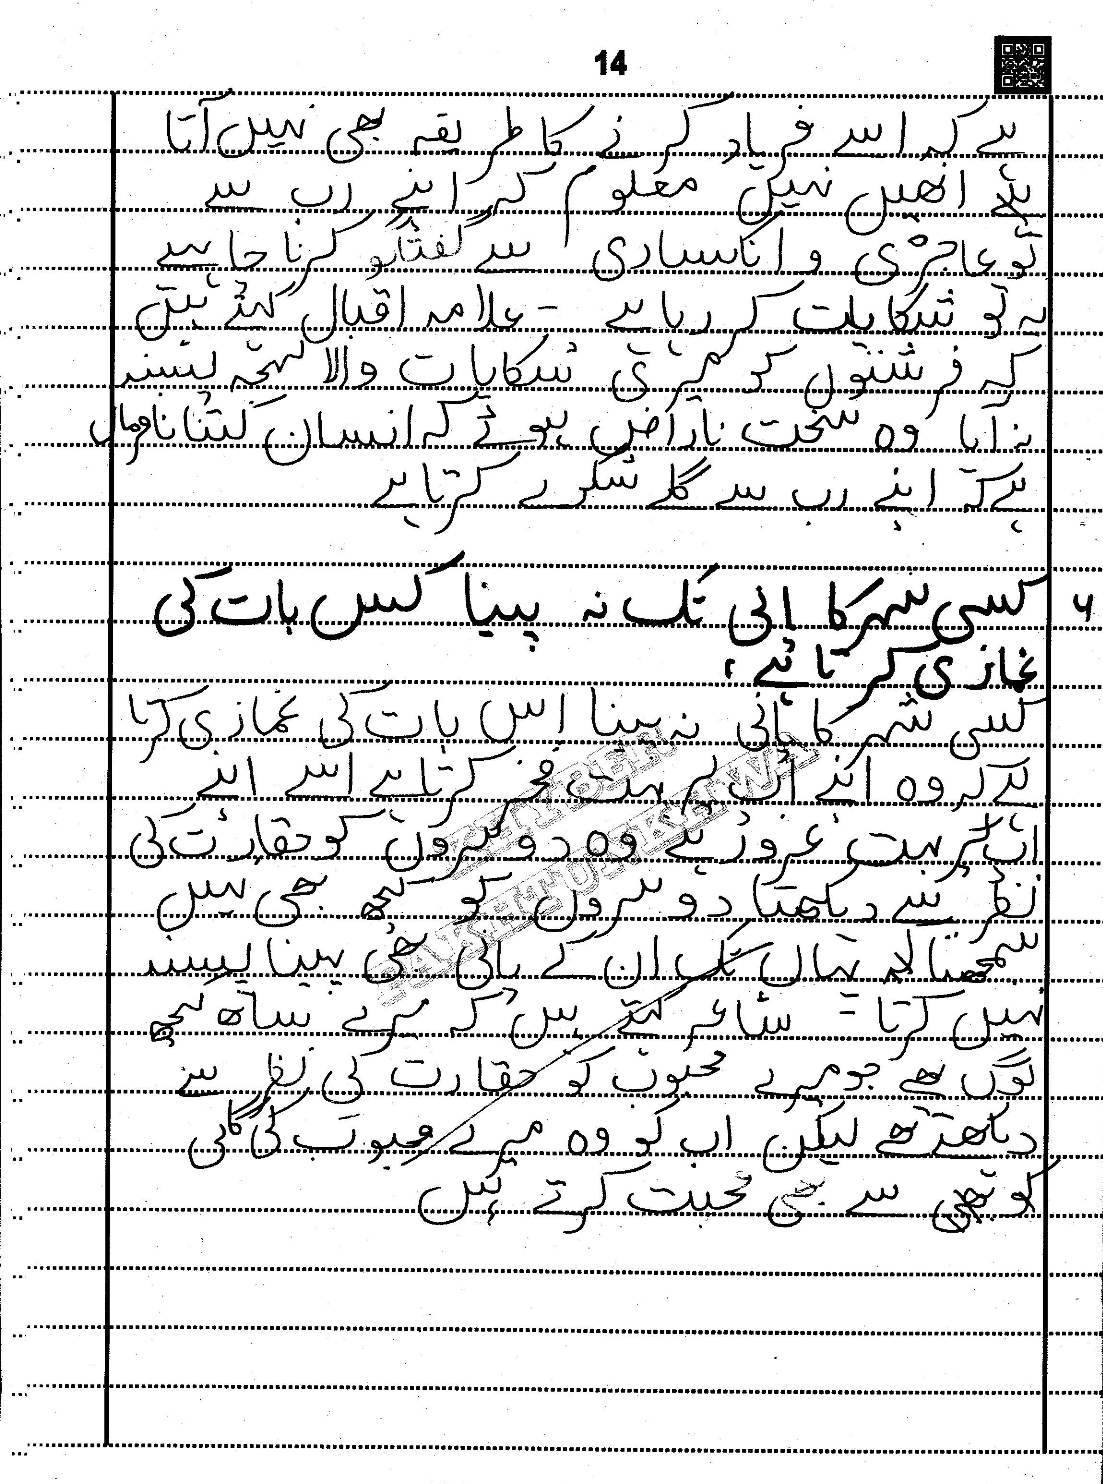 14
ہے کہ اسے فریاد کرنے کا طریقہ بھی نہیں آتا
انھیں نہیں معلوم کہ اپنے رب سے
تو عاجزی و انکساری سے گفتگو کرنا چاہیے
یہ تو شکایت کر رہا ہے - علامہ اقبال کہتے ہیں
کہ فرشتوں کو میری شکایات والا لہجہ پسند
نہ آیا وہ سخت ناراض ہوئے کہ انسان کتنا نافرمان
ہے کہ اپنے رب سے گلے شکوے کرتا ہے
۶ کسی شہر کا پانی تک نہ پینا کس بات کی
غمازی کرتا ہے ؟
کسی شہر کا پانی نہ پینا اس بات کی غمازی کرتا
ہے کہ وہ اپنے آپ پر بہت فخر کرتا ہے اسے اپنے
آپ پر بہت غرور ہے وہ دوسروں کو حقارت کی
نظر سے دیکھتا دوسروں کو کچھ بھی نہیں
سمجھتا یہاں تک ان کے پانی بھی پینا پسند
نہیں کرتا - شاعر کہتے ہیں کہ میرے ساتھ کچھ
لوگ تھے جو میرے محبوب کو حقارت کی نظر سے
دیکھتے تھے لیکن اب کو وہ میرے محبوب کی گلی
کو سے بھی محبت کرتے ہیں
KHYBER
PAKHTUNKHWA